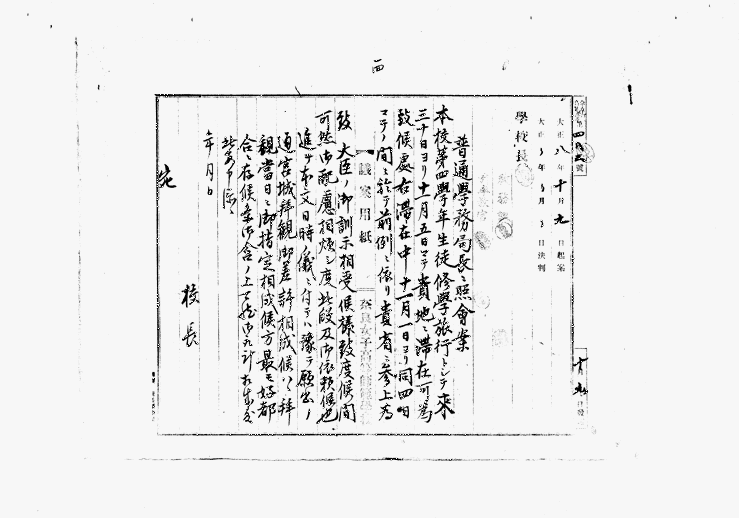 四
大正八年十月九日起案
大正 年 月 日決判
學校長
普通學務局長ニ照會案
本校第四學年生徒修學旅行トシテ來
三十日ヨリ十一月五日マテ貴地ニ滞在可為
致候處右滞在中十一月一日ヨリ同四日
マテノ間ニ於テ前例ニ依リ貴省ニ参上為
致 大臣ノ御訓示相受候様致度候間
可然御配慮相煩シ度此段及御依頼候也
議案用紙
奈良女子高等師範學校
進テ本文日時ノ儀ニ付テハ豫テ願出ノ
通宮城拜観御差許相成候ハヽ拜
観當日ニ御指定相成候方最モ好都
合ニ存候条御含ノ上
年月日
校長
宛